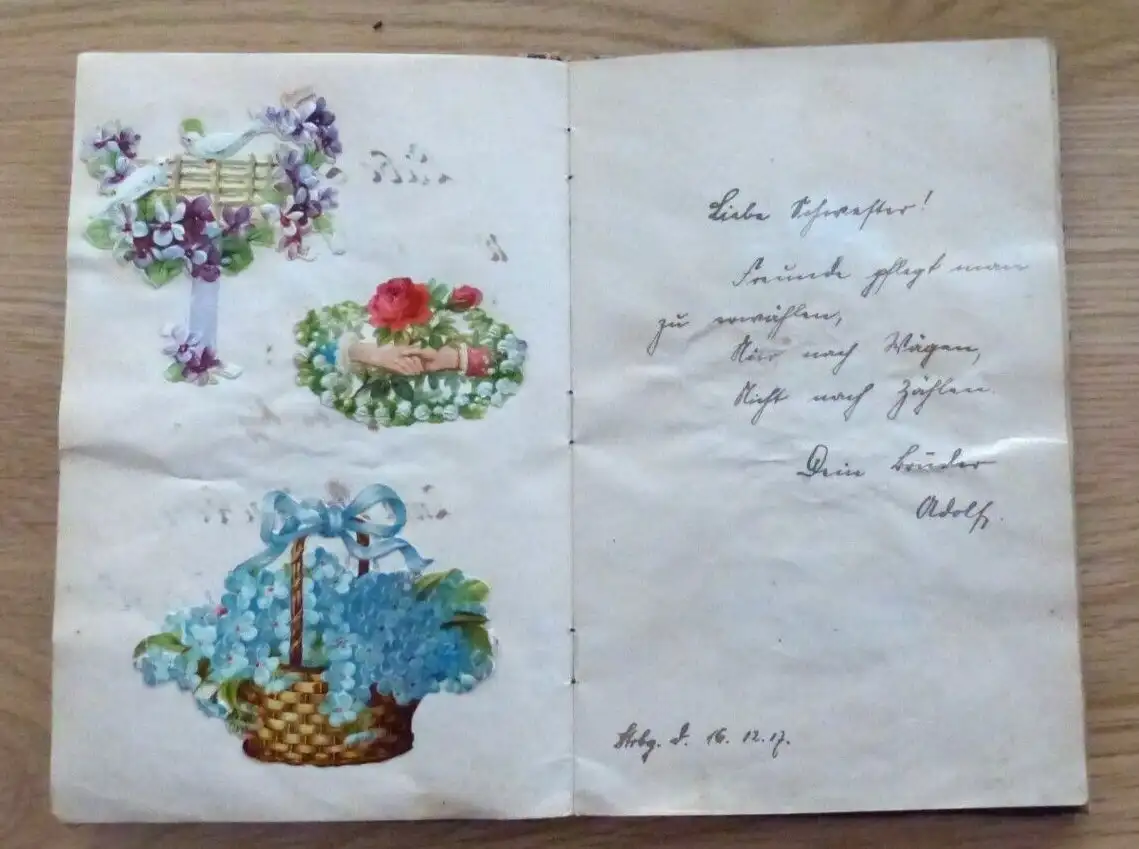 Liebe Schwester!
Freunde pflegt man
zu erwählen,
Nur nach Wägen,
Nicht nach Zählen.
Dein Bruder
Adolf.
Strbg. d. 16. 12. 17.